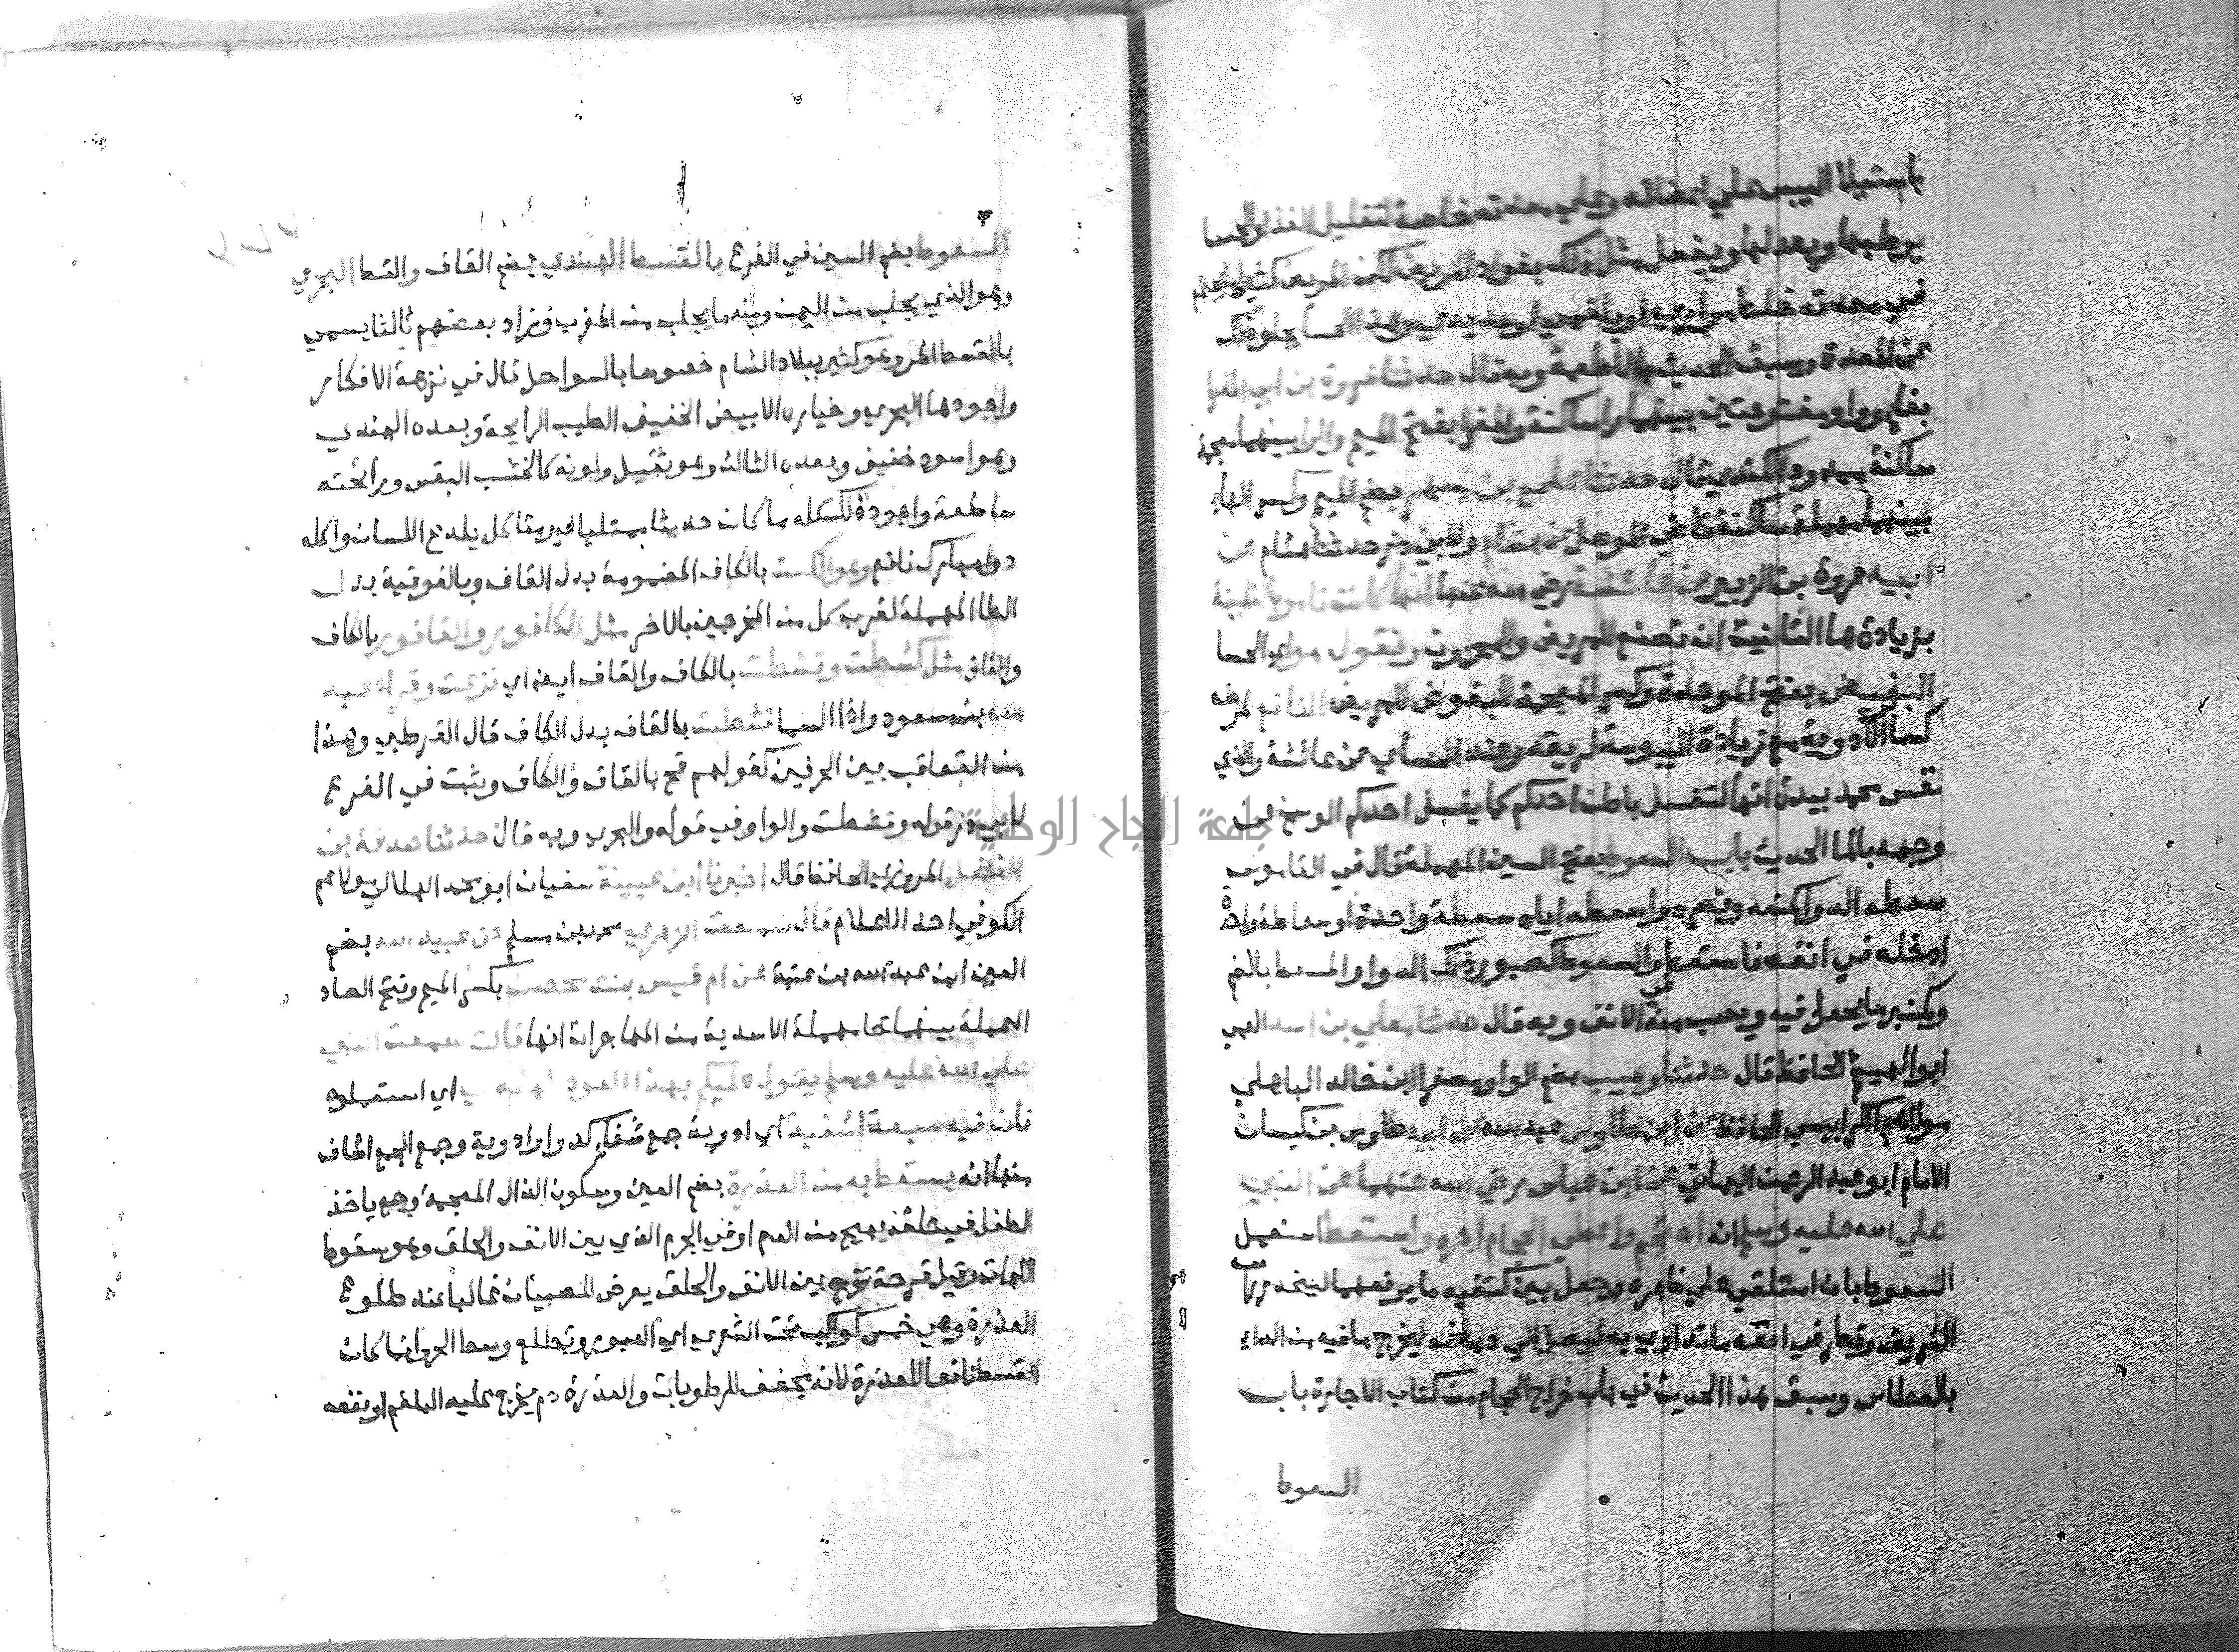 باستيلا اليبس علي اعضائه وعلي معدته خاصة لتقليل الغذا والحسا
يرطبها ويغذيها ويفعل مثل ذلك بفواد المريض لكن المريض كثيرا ما يجتمع
في معدته خلط مراري او بلغمي او صديدي وهذا الحسا يجلو ذلك
عن المعدة وسبق الحديث بالاطعمة وبه قال حدثنا فروة بن ابي المغرا
بفا وواو مفتوحتين بينهما را ساكنة والمغرا بفتح الميم والرا بينهما معجمة
ساكنة ممدود الكندي قال حدثنا علي بن مسهر بضم الميم وكسر الهاء
بينهما مهملة ساكنة قاضي الموصل عن هشام ولابي ذر حدثنا هشام عن
ابيه عروة بن الزبير عن عائشة رضي الله عنها انها كانت تامر بالتلبينة
بزيادة ها التانيث ان تصنع للمريض والمحزون وتقول هو اي الحسا
البغيض بفتح الموحدة وكسر المعجمة المبغوض للمريض النافع لمرضه
كسائر الادوية مع زيادة اليبوسة لريقه وعند النسأي عن عائشة والذي
نفس محمد بيده انها لتغسل باطن احدكم كما يغسل احدكم الوسخ عن
وجهه بالما الحديث باب السعوط بفتح السين المهملة قال في القاموس
سعطه الدوا كمنعه ونصره واسعطه اياه سعطة واحدة او اسعاطة واحدة
ادخله في انفه فاستعط والسعوط كصبور ذلك الدوا والمسعط بالضم
وكمنبر ما يجعل فيه ويصب منه في الانف وبه قال حدثنا معلي بن اسد العمي
ابو الهيثم الحافظ قال حدثنا وهيب بضم الواو مصغرا ابن خالد الباهلي
مولاهم الكرابيسي الحافظ عن ابن طاوس عبد الله عن ابيه طاوس بن كيسان
الامام ابو عبد الرحمن اليماني عن ابن عباس رضي الله عنهما عن النبي
صلي الله عليه وسلم انه احتجم واعطي الحجام اجره واستعط استعمل
السعوط بان استلقي علي ظهره وجعل بين كتفيه ما يرفعهما لينحدر راسه
الشريف وقطر في انفه ما تداوي به ليصل الي دماغه ليخرج ما فيه من الداي
بالعطاس وسبق هذا الحديث في باب خراج الحجام من كتاب الاجارة باب
السعوط
السعوط بضم السين في الفرع بالقسط الهندي بضم القاف والقسط البحري
وهو الذي يجلب من اليمن ومنه ما يجلب من المغرب وزاد بعضهم ثالثا يسمي
بالقسط المر وهو كثير ببلاد الشام خصوصا بالسواحل قال في نزهة الافكار
واجودها البحري وخياره الابيض الخفيف الطيب الرايحة وبعده الهندي
وهو اسود خفيف وبعده الثالث وهو ثقيل ولونه كالخشب البقس ورائحته
ساطعة واجود ذلك كله ما كان حديثا ممتليا غير متاكل يلدغ اللسان وكله
دوا مبارك نافع وهو الكست بالكاف المضمومة بدل القاف وبالفوقية بدل
الطا المهملة لقرب كل من المخرجين بالاخر مثل الكافور والقافور بالكاف
والقاف مثل كشطت وقشطت بالكاف والقاف ايضا اي نزعت وقرا عبد
الله بن مسعود واذا السما قشطت بالقاف بدل الكاف قال القرطبي وهذا
من التعاقب بين الحرفين كقولهم قح بالقاف والكاف وثبت في الفرع
لابي ذر قوله وقشطت والواو في قوله والبحري وبه قال حدثنا صدقة بن
الفضل المروزي الحافظ قال اخبرنا ابن عيينة سفيان ابو محمد الهلالي مولاهم
الكوفي احد الاعلام قال سمعت الزهري محمد بن مسلم عن عبيد الله بضم
العين ابن عبد الله بن عتبة عن ام قيس بنت محصن بكسر الميم وفتح الصاد
المهملة بينهما حا مهملة الاسدية من المهاجرات انها قالت سمعت النبي
صلي الله عليه وسلم يقول عليكم بهذا العود الهندي اي استعملوه
فان فيه سبعة اشفية اي ادوية جمع شفا كدوا وادوية وجمع الجمع اشاف
منها انه يستعط به من العذرة بضم العين وسكون الذال المعجمة وجع ياخذ
الطفل في حلقه يهيج من الدم او في الخرم الذي بين الانف والحلق وهو سقوط
اللهات وقيل قرحة تخرج بين الانف والحلق يعرض للصبيان غالبا عند طلوع
العذرة وهي خمس كواكب تحت الشعري اي العبور وتطلع وسط الحر وانما كان
القسط نافعا للعذرة لانه يجفف الرطوبات والعذرة دم يخرج عليه البلغم او نفعه
جامعة النجاح الوطنية